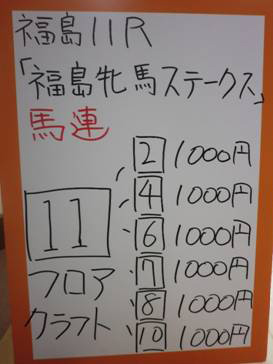 福島11R
「福島牝馬ステークス」
馬連
11
フロア
クラフト
2 1000円
4 1000円
6 1000円
7 1000円
8 1000円
10 1000円